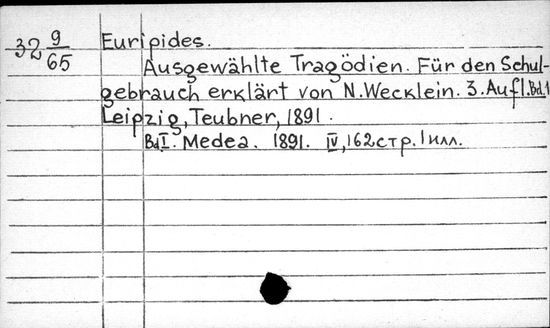 32 9/65
Euripides.
Ausgewählte Tragödien. Für den Schul-
gebrauch erklärt von N. Wecklein. 3. Aufl. Bd. 1
Leipzig, Teubner, 1891.
Bd I. Medea. 1891. IV, 162 стр. 1 илл.